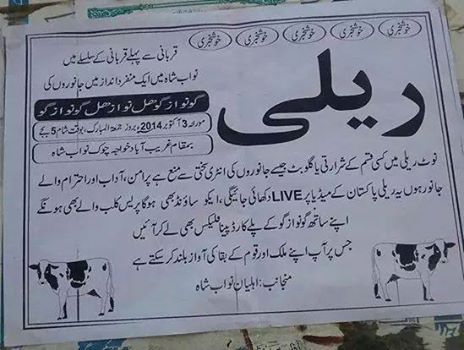 خوشخبری خوشخبری خوشخبری خوشخبری خوشخبری
قربانی سے پہلے قربانی کے سلسلے میں
نواب شاہ میں ایک منفرد انداز میں جانوروں کی
ریلی
گو نواز گو ھل نواز ھل گو نواز گو
مورخہ 3 اکتوبر 2014ء بروز جمعۃ المبارک، بوقت شام 5 بجے
بمقام غریب آباد خواجہ چوک نواب شاہ
نوٹ ریلی میں کسی قسم کے شرارتی یا گلو بٹ جیسے جانوروں کی انٹری سختی سے منع ہے پر امن، آداب اور احترام والے
جانور ہوں یہ ریلی پاکستان کے میڈیا پر LIVE دکھائی جائیگی، ایکو ساؤنڈ بھی ہوگا پریس کلب والے بھی ہونگے
اپنے ساتھ گو نواز گو کے پلے کارڈ پینا فلیکس بھی لے کر آئیں
جس پر آپ اپنے ملک اور قوم کے بقا کی آواز بلند کر سکتے ہے
منجانب: اہلیان نواب شاہ